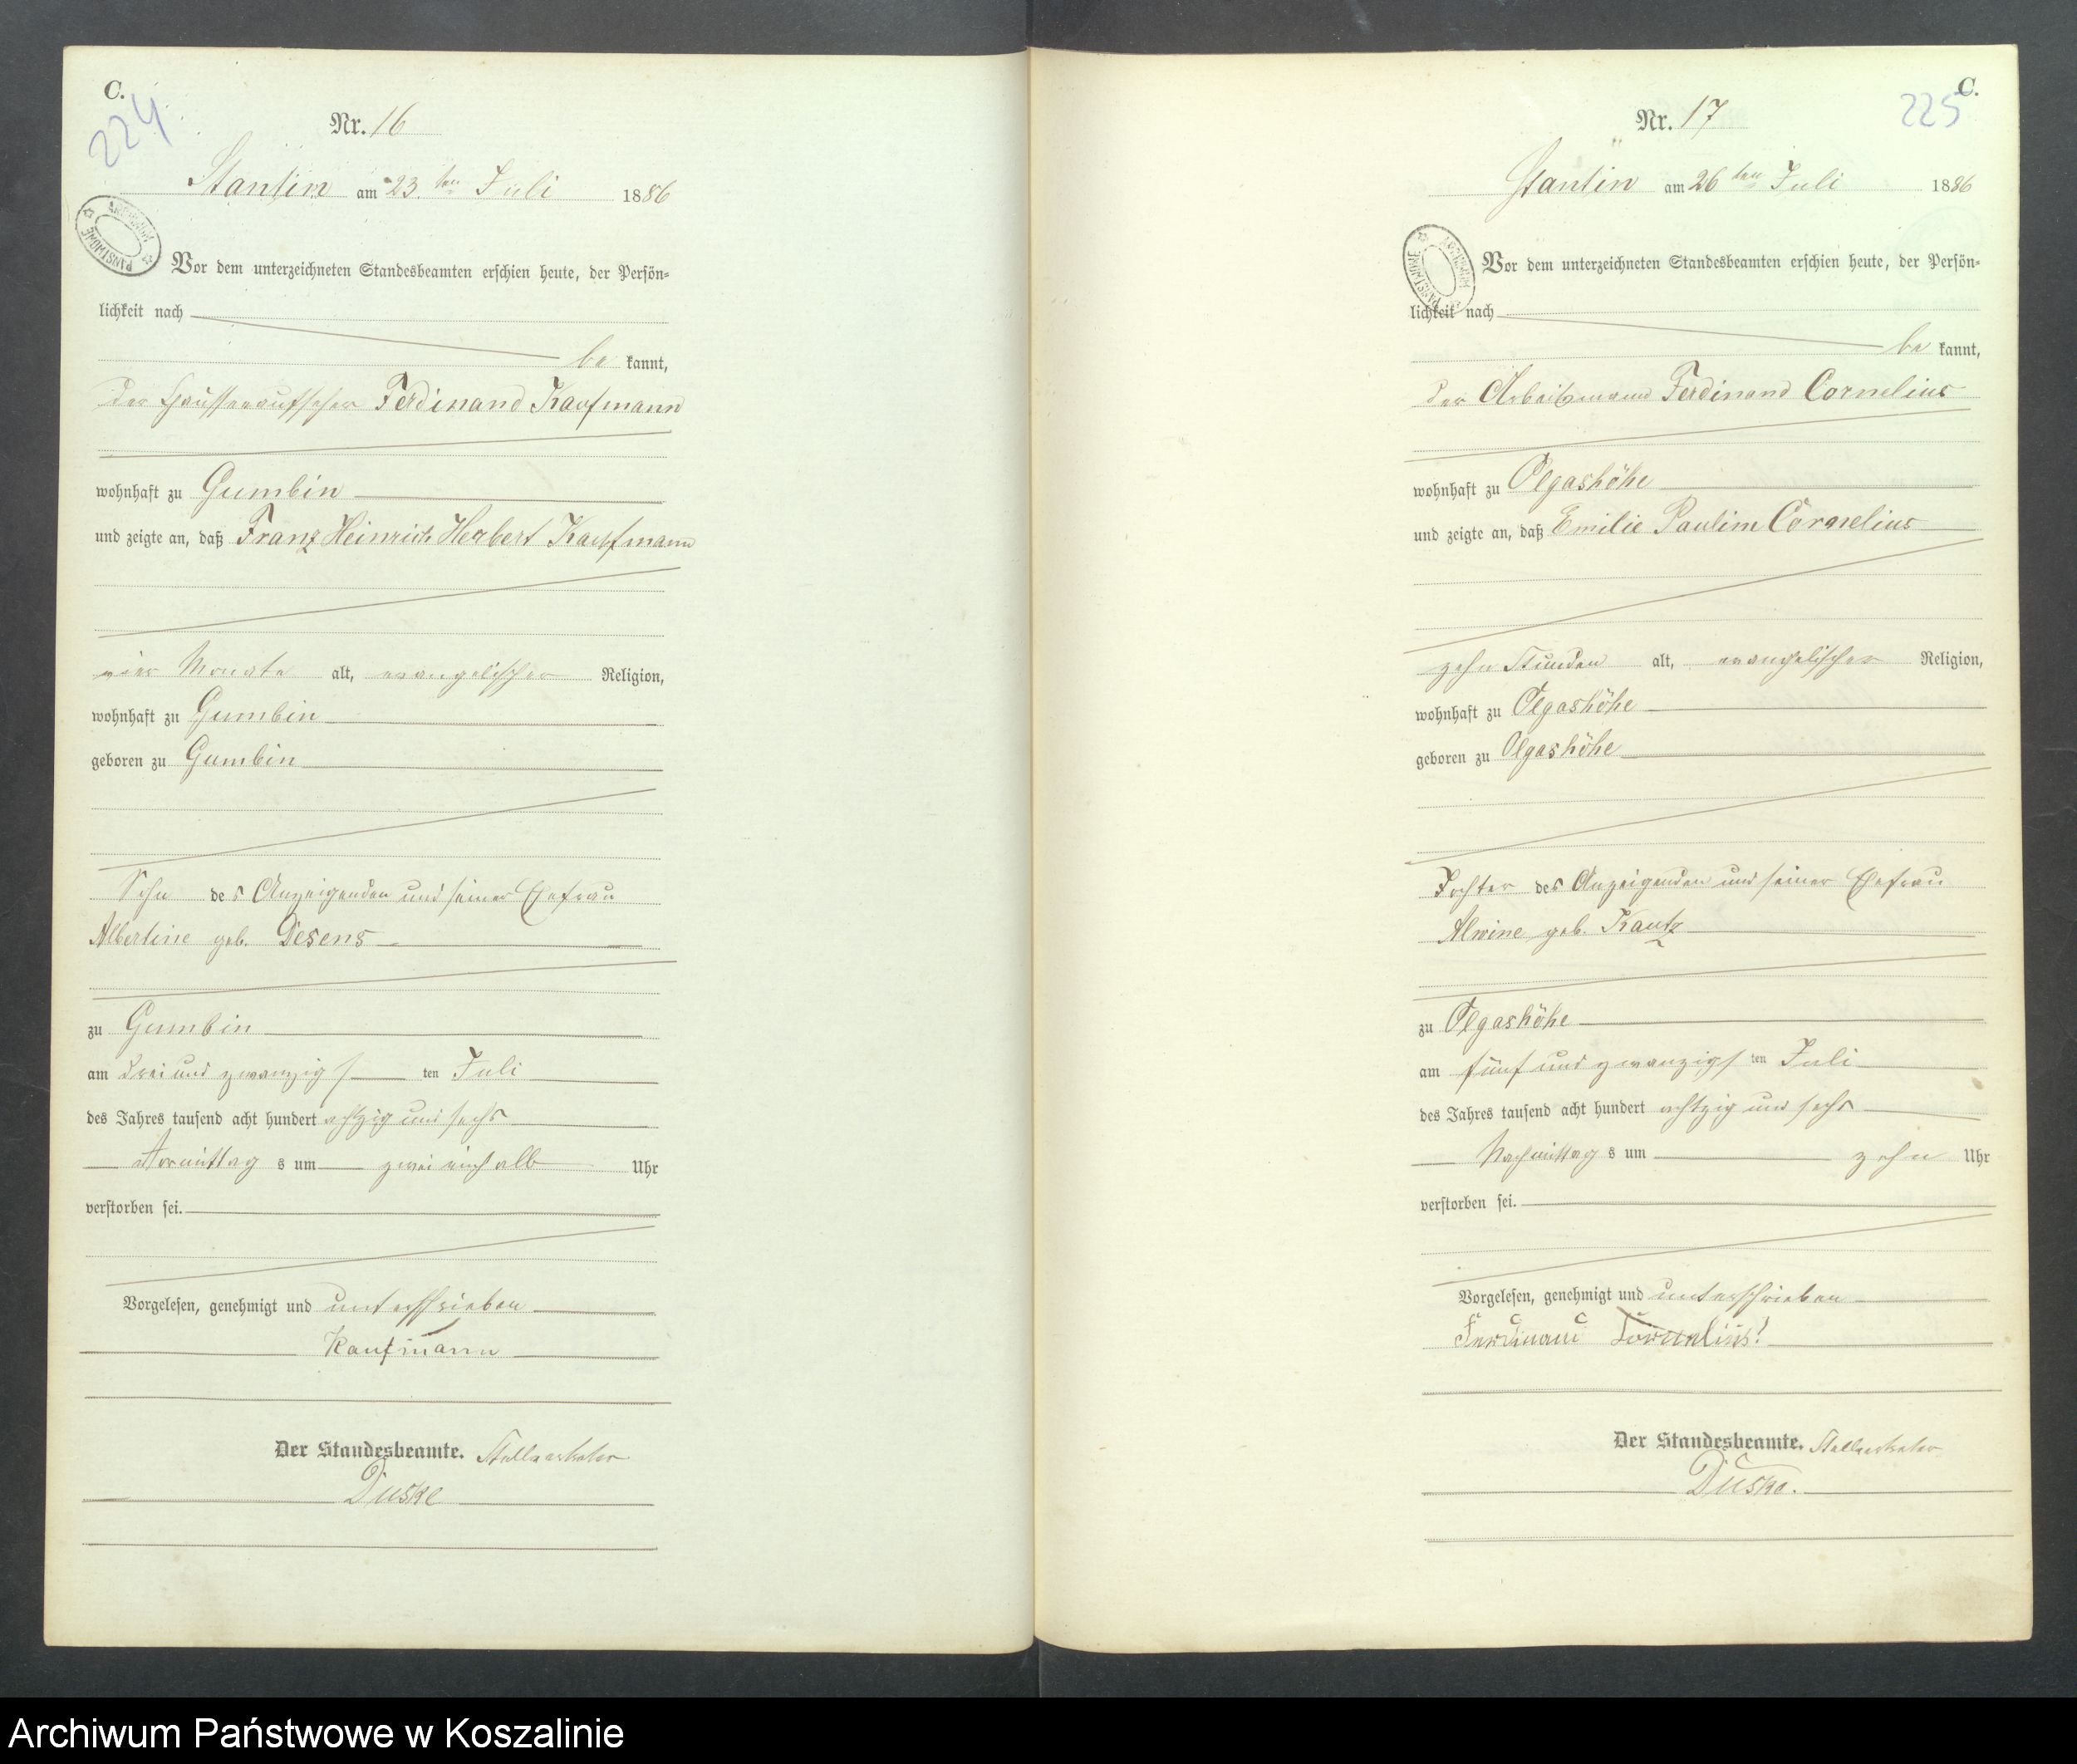 C.
224
Nr. 16
Stantin am 23. ten Juli 1886
ARCHIWUM PAŃSTWOWE
Vor dem unterzeichneten Standesbeamten erschien heute, der Persön-
lichkeit nach
be kannt,
der Chausseeaufseher Ferdinand Kaufmann
wohnhaft zu Gumbin
und zeigte an, daß Franz Heinrich Herbert Kauffmann
vier Monate alt, evangelischer Religion,
wohnhaft zu Gumbin
geboren zu Gumbin
Sohn des Anzeigenden und seiner Ehefrau
Albertine geb. Desens
zu Gumbin
am drei und zwanzigsten Juli
des Jahres tausend acht hundert achtzig und sechs
Vormittags um zwei einhalb Uhr
verstorben sei.
Vorgelesen, genehmigt und unterschrieben
Kaufmann
Der Standesbeamte. Stellvertreter
Duske
C.
225
Nr. 17
Stantin am 26 ten Juli 1886
ARCHIWUM PAŃSTWOWE
Vor dem unterzeichneten Standesbeamten erschien heute, der Persön-
lichkeit nach
be kannt,
der Arbeitsmann Ferdinand Cornelius
wohnhaft zu Olgashöhe
und zeigte an, daß Emilie Pauline Cornelius
zehn Stunden alt, evangelischer Religion,
wohnhaft zu Olgashöhe
geboren zu Olgashöhe
Tochter des Anzeigenden und seiner Ehefrau
Alwine geb. Kautz
zu Olgashöhe
am fünf und zwanzigsten Juli
des Jahres tausend acht hundert achtzig und sechs
Nachmittags um zehn Uhr
verstorben sei.
Vorgelesen, genehmigt und unterschrieben
Ferdinand Cornelius!
Der Standesbeamte. Stellvertreter
Duske.
Archiwum Państwowe w Koszalinie